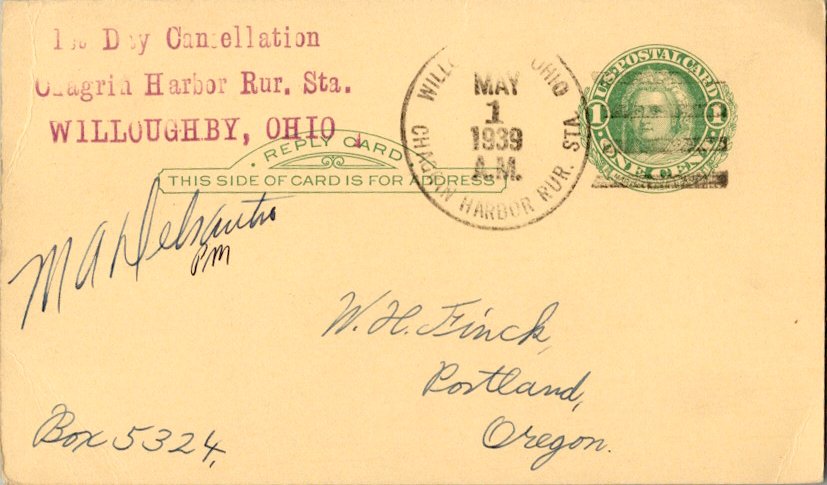 1st Day Cancellation
Chagrin Harbor Rur. Sta.
WILLOUGHBY, OHIO
REPLY CARD
THIS SIDE OF CARD IS FOR ADDRESS
WILLOUGHBY, OHIO
MAY
1
1939
A.M.
CHAGRIN HARBOR RUR. STA.
U.S. POSTAL CARD
1 1
ONE CENT
M A Delsantro
PM
W. H. Finck,
Portland,
Oregon.
Box 5324,